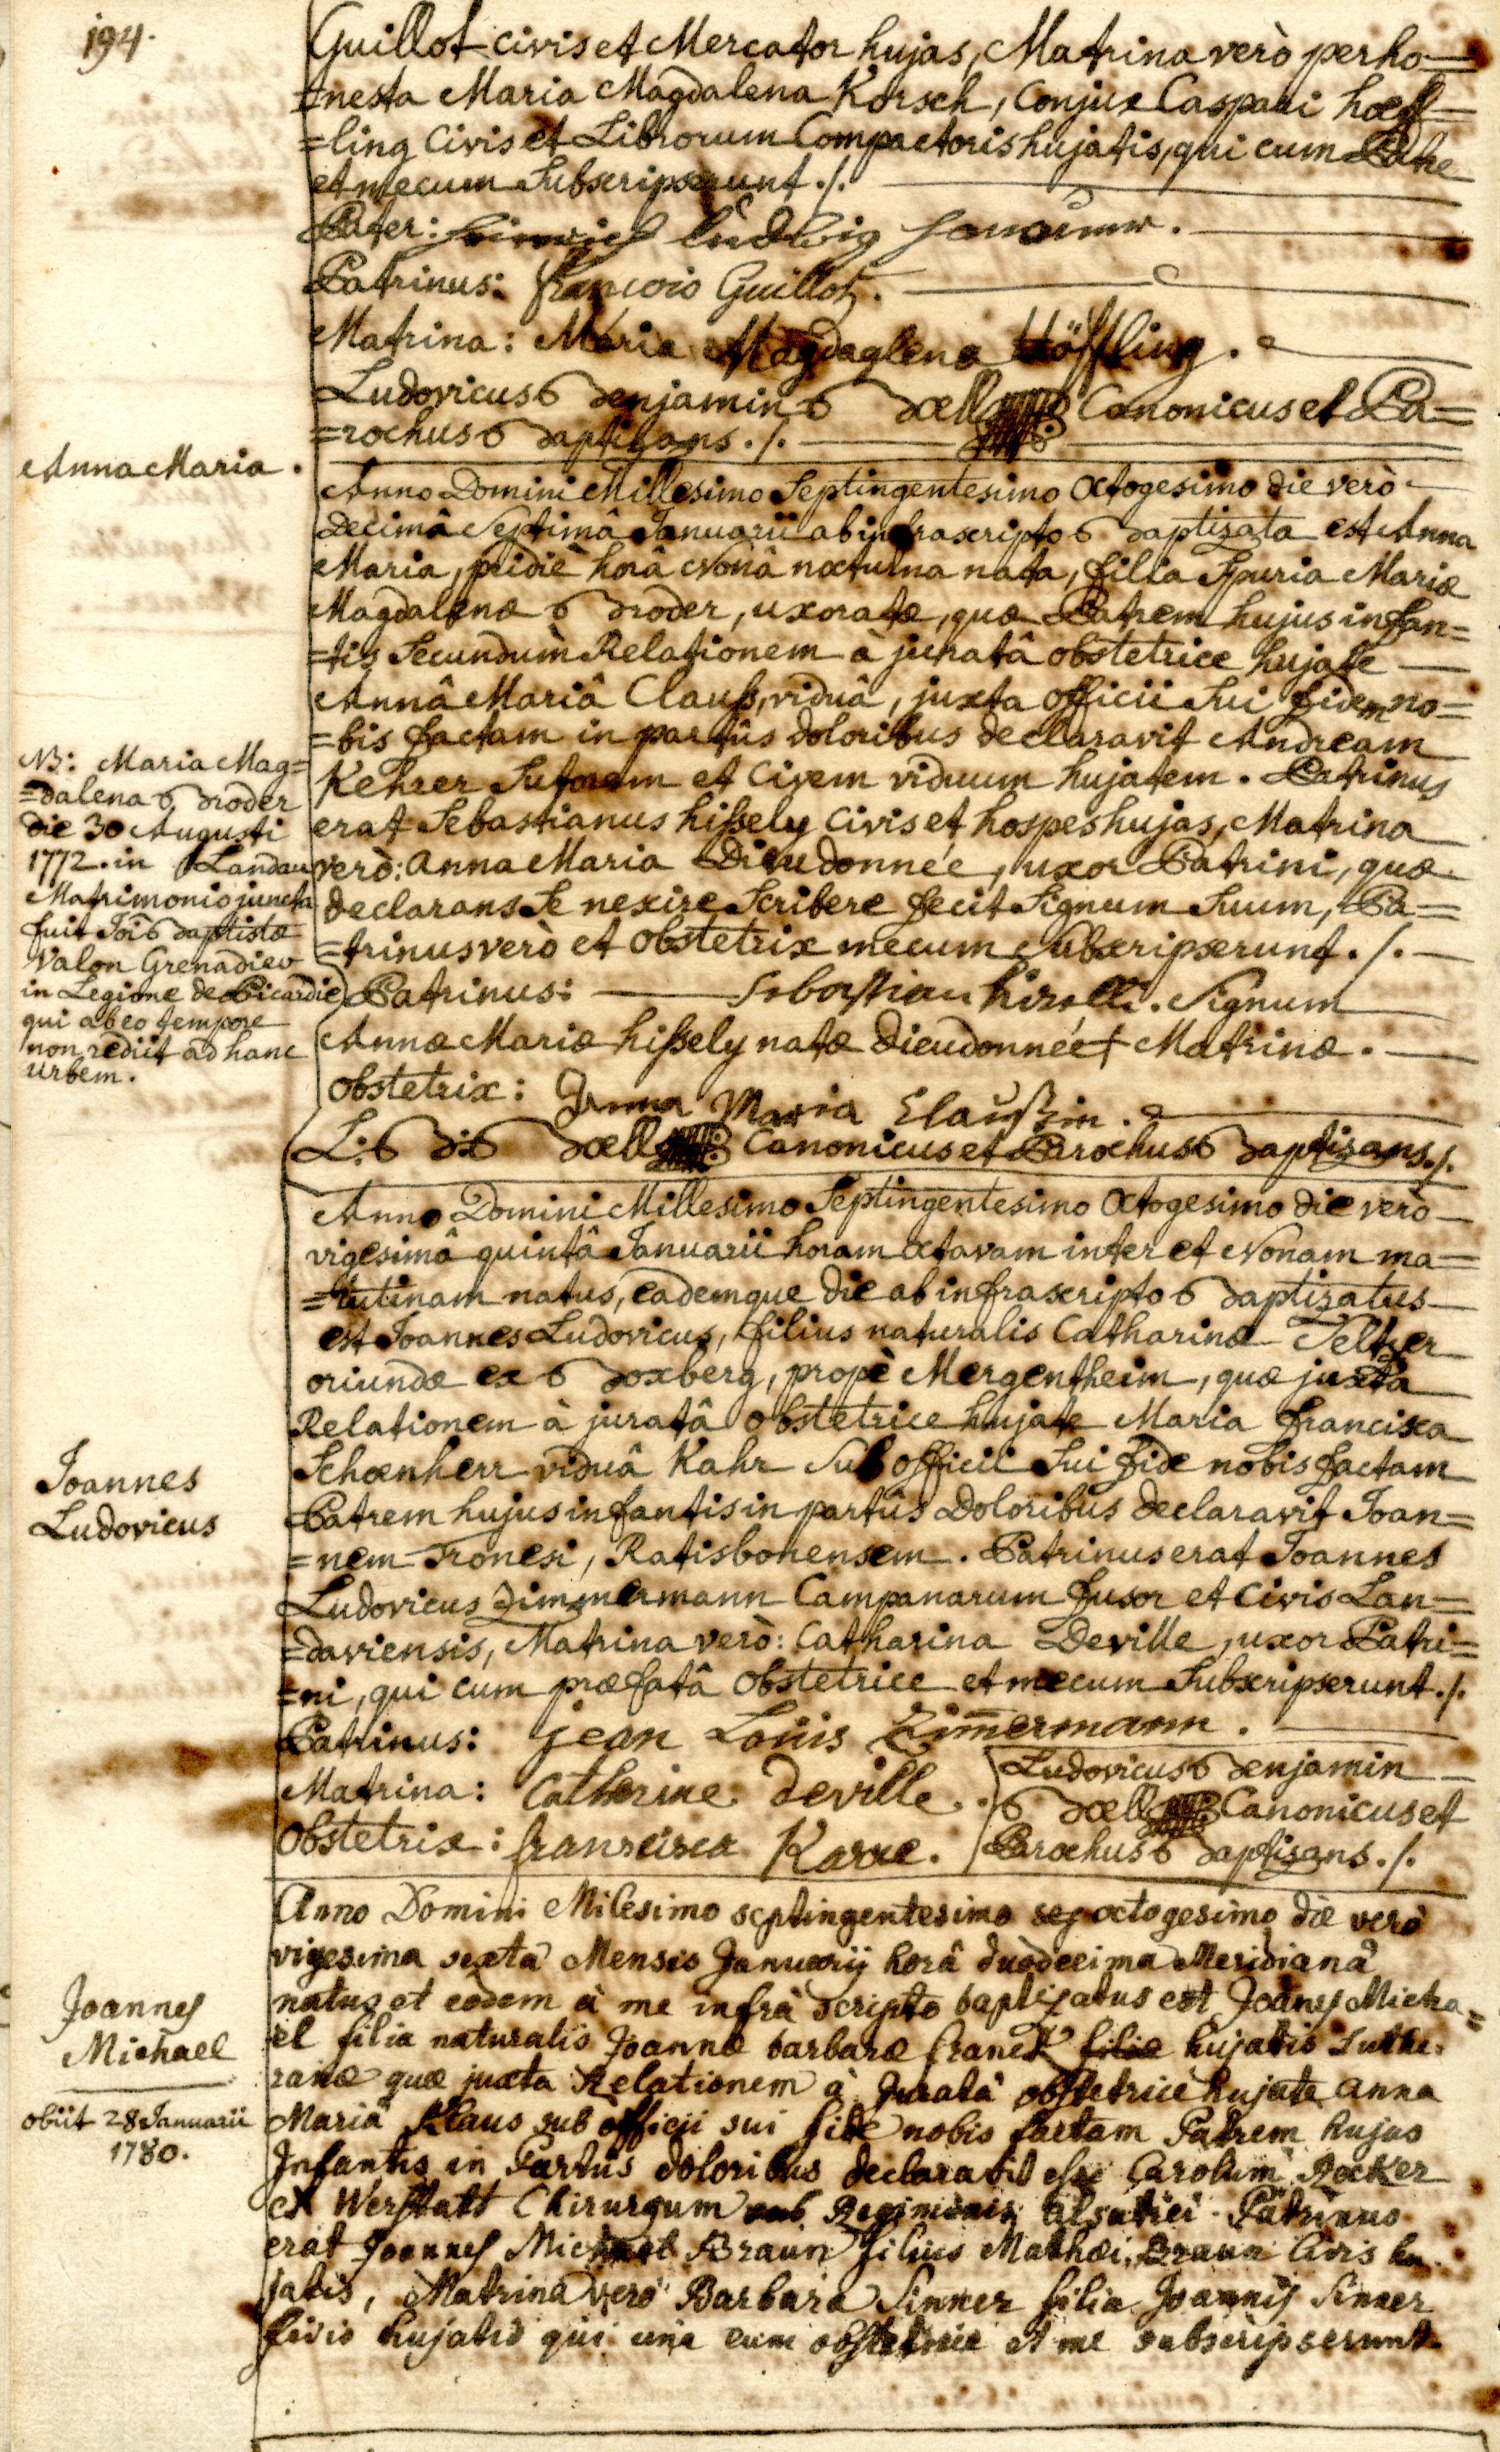 194.
Guillot civis et Mercator hujas, Matrina verò perho=
=nesta Maria Magdalena Korsch, Conjux Caspari hoeff=
=ling Civis et Librorum Compactoris hujatis, qui cum Patre
et mecum Subscripserunt ./.
Pater: Heinrich Ludwig
Patrinus: françois Guillot.
Matrina: Maria Magdaglena Höffling.
Ludovicus Benjamin Boell Canonicus et Pa=
=rochus Baptizans ./.
Anna Maria.
Anno Domini Millesimo Septingentesimo Octogesimo die verò
decimâ Septimâ Januarii ab infrascripto Baptizata est Anna
Maria, pridiè horâ Nonâ nocturna nata, filia Spuria Mariæ
Magdalenæ Broder, uxoratæ, quæ Patrem hujus infan=
=tis Secundùm Relationem à juratâ obstetrice hujate
Annâ Mariâ Clauß, viduâ, juxta officii Sui fidem no=
=bis factam in partûs doloribus declaravit Andream
Kehrer Sutorem et Civem viduum hujatem. Patrinus
erat Sebastianus hißely Civis et hospes hujas, Matrina
verò: Anna Maria Dieudonnée, uxor Patrini, quæ
declarans Se nexire Scribere fecit Signum Suum, Pa=
=trinus verò et Obstetrix mecum Subscripserunt ./.
NB: Maria Mag=
=dalena Broder
die 30 Augusti
1772. in Landau
Matrimonio juncta
fuit Jois Baptistæ
Valon Grenadier
in Legione de Picardie
qui ab eo tempore
non rediit ad hanc
urbem.
Patrinus: Sebastian hirelli. Signum
Annæ Mariæ hißely natæ Dieudonnée † Matrinæ.
Obstetrix: Anna Maria Claußin.
L: B: Boell Canonicus et Parochus Baptizans ./.
Anno Domini Millesimo Septingentesimo Octogesimo die verò
vigesimâ quintâ Januarii horam octavam inter et Nonam ma=
=tutinam natus, eademque die ab infrascripto Baptizatus
est Joannes Ludovicus, filius naturalis Catharinæ Seltzer
oriundæ ex Boxberg, propè Mergentheim, quæ juxta
Relationem à juratâ Obstetrice hujate Maria Francisca
Schoenherr viduâ Kahr Sub officii Sui fide nobis factam
Patrem hujus infantis in partûs Doloribus declaravit Joan=
=nem Tronesi, Ratisbonensem. Patrinus erat Joannes
Ludovicus Zimmermann Campanarum fusor et Civis Lan=
=daviensis, Matrina verò: Catharina Deville, uxor Patri=
=ni, qui cum præfatâ Obstetrice et mecum Subscripserunt ./.
Joannes
Ludovicus
Patrinus: jean Louis Zimmermann.
Matrina: Catherine deville.
Obstetrix: franscisca Karre.
Ludovicus Benjamin
Boell Canonicus et
Parochus Baptizans ./.
Anno Domini Milesimo septingentesimo sep octogesimo die verò
vigesima sexta Mensis Januarij horâ duodecima Meridianâ
natus et eodem à me infrà Scripto baptizatus est Joañes Micha=
el filia naturalis Joannæ barbaræ franck filiæ hujatis Luthe=
ranæ quæ juxta Relationem à Juratâ obstetrice hujate Anna
Mariâ Klaus sub officii sui fide nobis factam Patrem hujus
Infantis in Partûs doloribus declaravit esse Carolum Rocker
ex Werstatt Chirurgum sub Regiminis alsatici. Patrinus
erat Joannes Michael Braun filius Mathæi Braun Civis hu
jatis, Matrina vero Barbara Sinner filia Joannis Sinner
Civis hujatis qui una cum obstetrice et me subscripserunt.
Joannes
Michael
obiit 28 Januarii
1780.